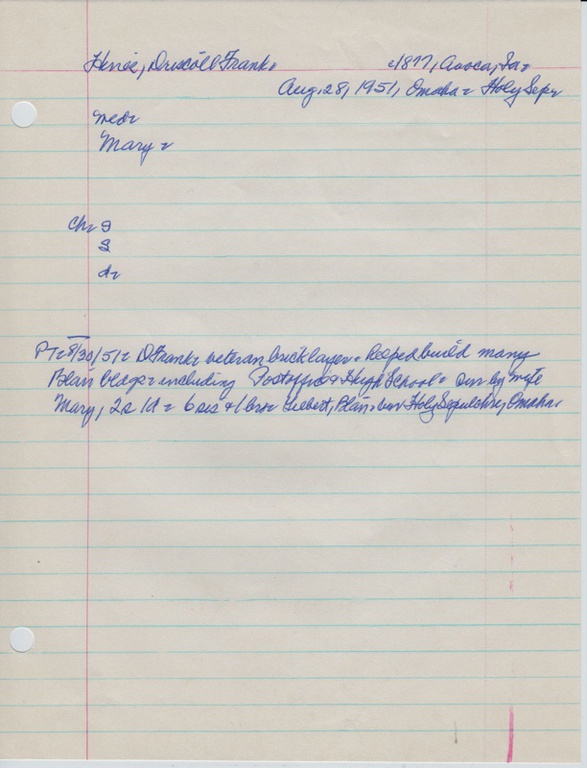 Henie, Driscoll Frank. c1877, Avoca, Ia.
Aug. 28, 1951, Omaha - Holy Sep.
med.
Mary -
Ch - s
s
d.
PT - 8/30/51 - D. Frank - veteran bricklayer - Helped build many
Blair bldgs - including Postoffice & High School - sur by wife
Mary, 2s 1d - 6 sis + 1 bro - Gilbert, Blair - bur Holy Sepulchre, Omaha.